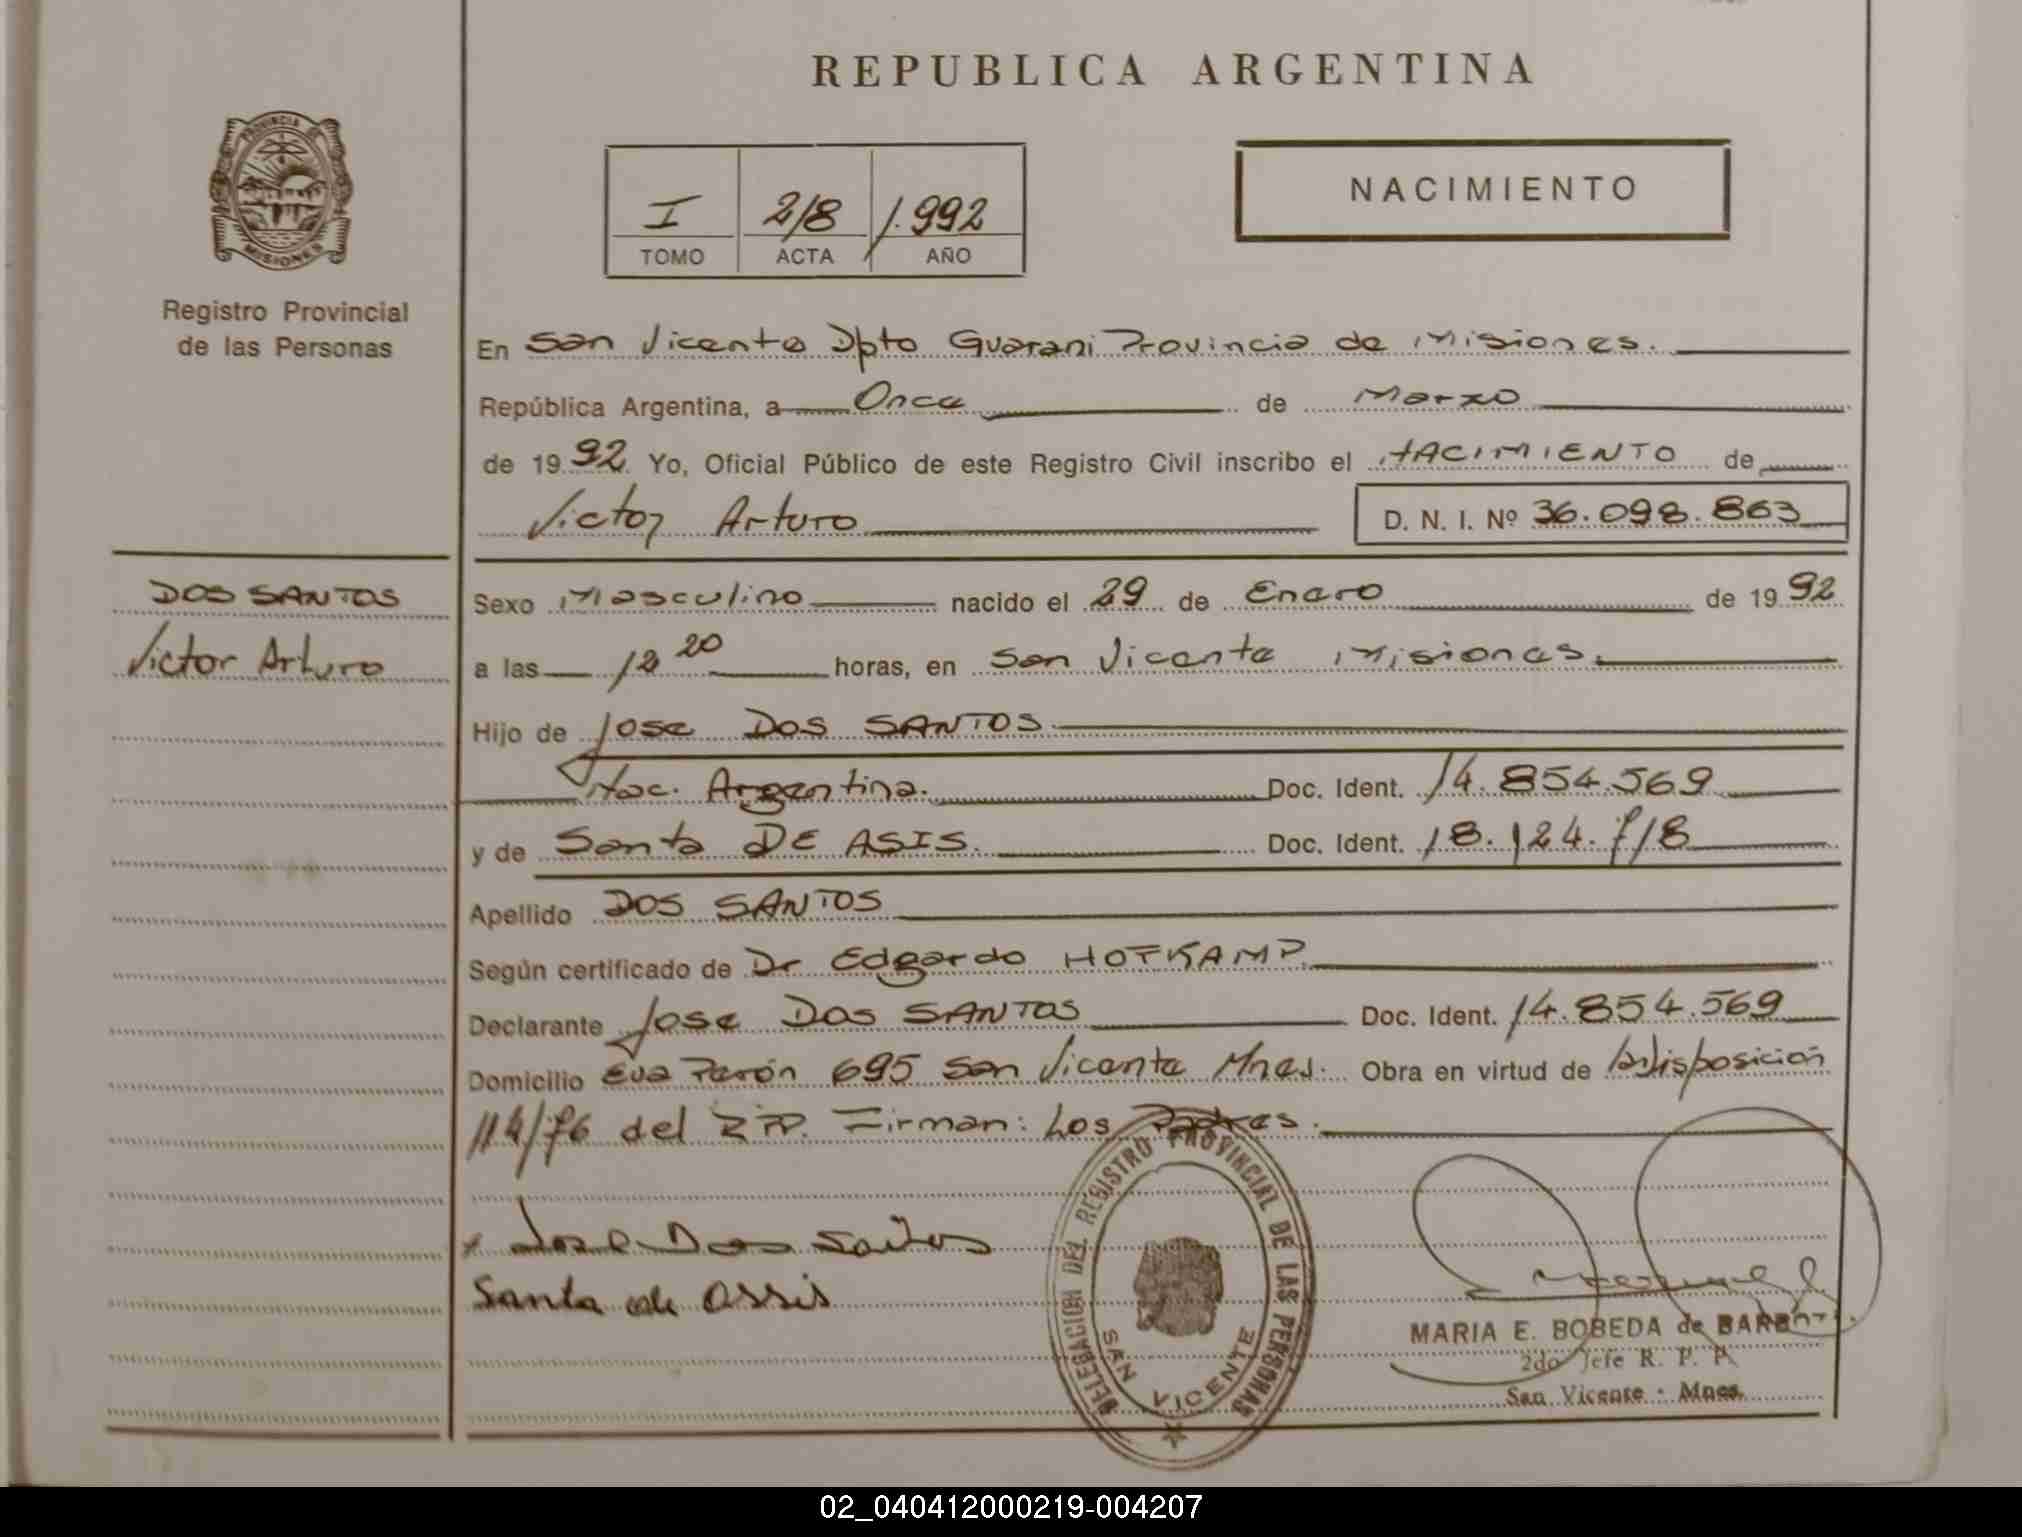 REPUBLICA ARGENTINA
PROVINCIA DE
MISIONES
Registro Provincial
de las Personas
I 218 1.992
TOMO ACTA AÑO
NACIMIENTO
En San Vicente Dpto Guarani Provincia de Misiones.
República Argentina, a Once de Marzo
de 1992 Yo, Oficial Público de este Registro Civil inscribo el NACIMIENTO de
Victor Arturo D. N. I. Nº 36.098.863
DOS SANTOS
Victor Arturo
Sexo Masculino nacido el 29 de Enero de 1992
a las 12 20 horas, en San Vicente Misiones.
Hijo de Jose DOS SANTOS
Nac. Argentina. Doc. Ident. 14.854.569
y de Santa DE ASIS. Doc. Ident. 18.124.718
Apellido DOS SANTOS
Según certificado de Dr Edgardo HOTKAMP
Declarante Jose DOS SANTOS Doc. Ident. 14.854.569
Domicilio Eva Perón 695 San Vicente Mnes. Obra en virtud de la disposición
114/76 del RPP. Firman: Los Padres.
x Jose Dos Santos
Santa de assis
DELEGACION DEL REGISTRO PROVINCIAL DE LAS PERSONAS
SAN VICENTE
MARIA E. BOBEDA de
2do Jefe R. P. P.
San Vicente - Mnes.
02_040412000219-004207